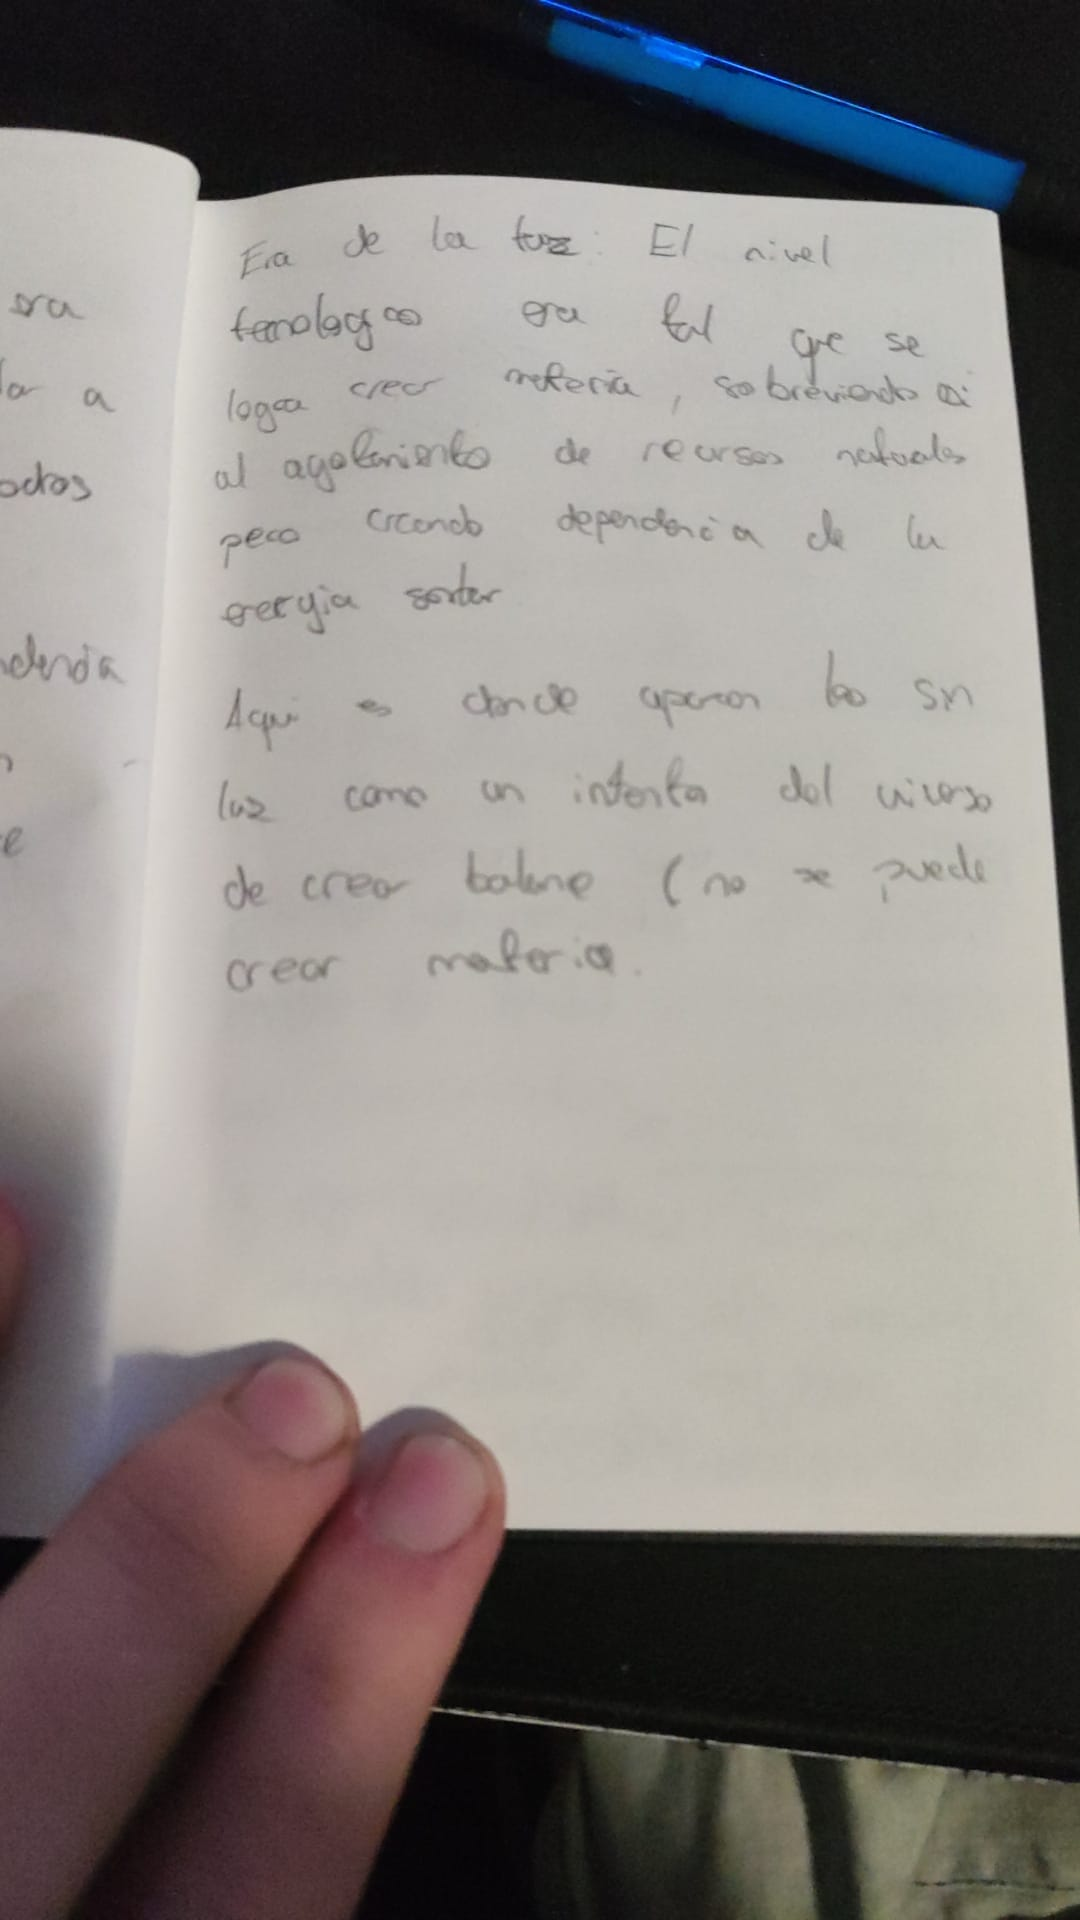 sra
lar a
octos
ndencia
e
Era de la luz: El nivel
tecnologico era tal que se
logra crear materia, sobreviendo asi
al agotamiento de recursos naturales
pero creando dependencia de la
energia
Aqui es donde aparecen los sin
luz como un intento del universo
de crear balance (no se puede
crear materia.